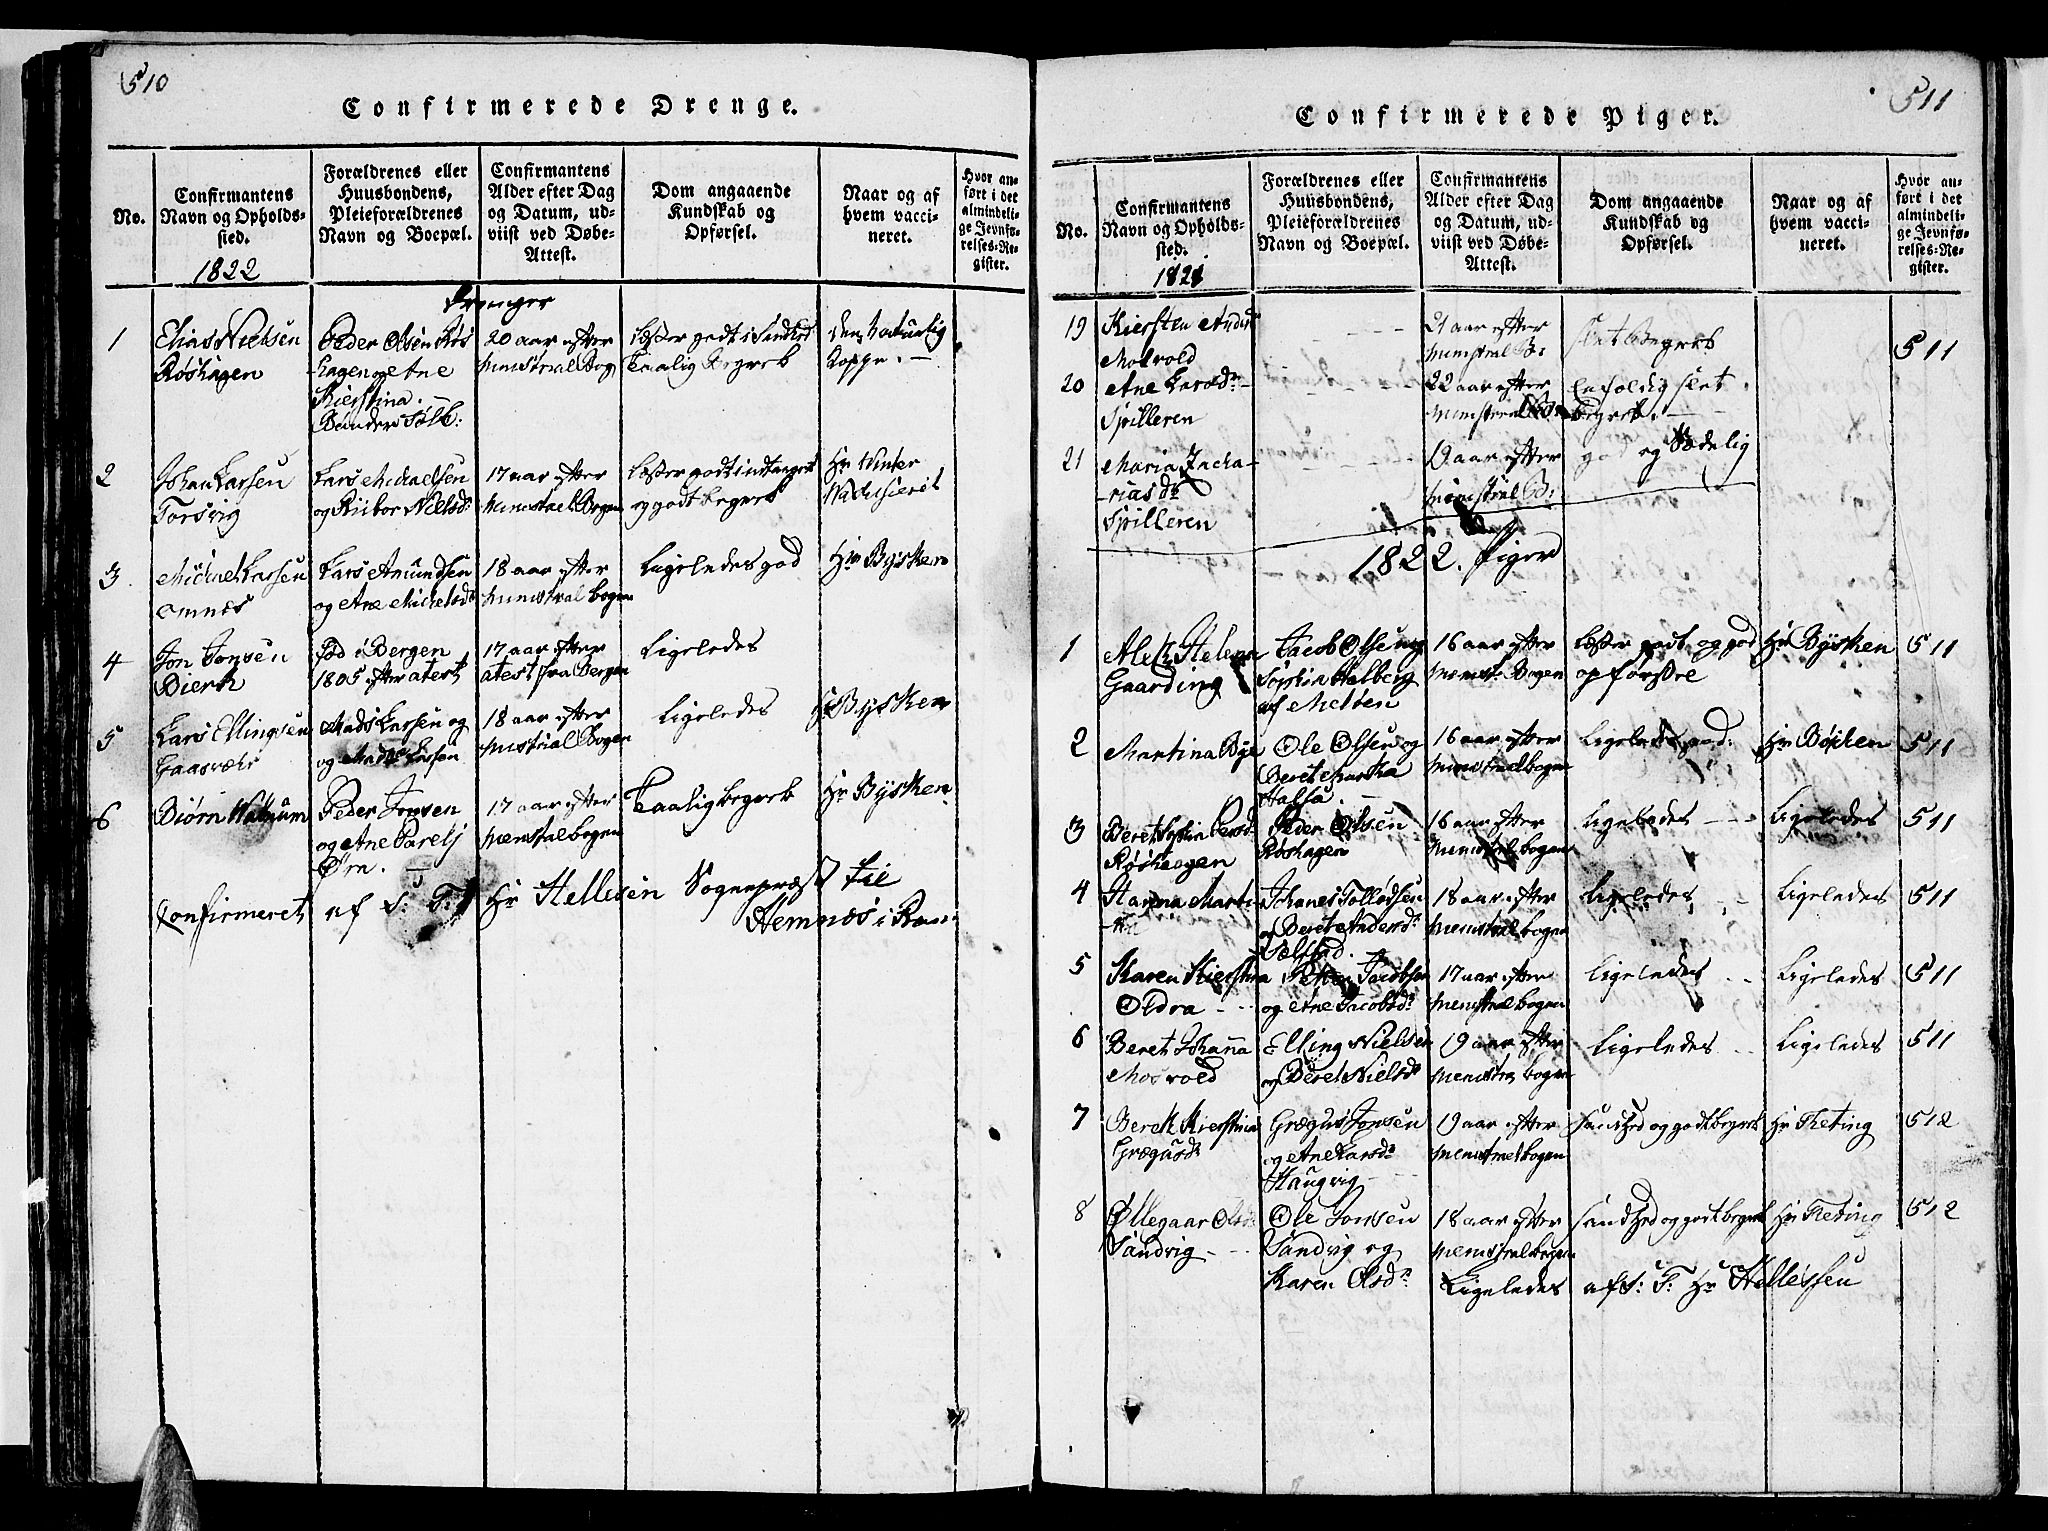 510
Confirmerede Drenge.
No.
Confirmantens
Navn og Opholds-
sted.
1822
Forældrenes eller
Huusbondens,
Pleieforældrenes
Navn og Boepæl.
Confirmantens
Alder efter Dag
og Datum, ud-
viist ved Døbe-
Attest.
Dom angaaende
Kundskab og
Opførsel.
Naar og af
hvem vacci-
neret.
Hvor an-
ført i det
almindeli-
ge Jevnfø-
relses-Re-
gister.
Drenger
1
Elias Nielsen
Røshagen
Peder Olsen Røs
hagen og Ane
Kierstina. -
Bønder Folk:
20 aar efter
Ministrial Bog
læser godt i Sindhed
Taalig Begreb
den Naturlig
Koppe. -
2
Johan Larsen
Torsvig
Lars Michaelsen
og Riibor Nielsd:
17 aar efter
Ministrael Bogen
læser godt indtageli
og godt begreb
Hr Winter
3
Michael Larsen
omnes
Lars Amundsen
og Ane Michelsd:
18 aar efter
Ministral bogen
Ligeledes god
Hr Bysken
4
Jon Jonsen
Bierk
fød i Bergen
1805 efter atest
17 aar efter
atest fra Bergen
Ligeledes
5
Lars Ellingsen
Gaasvær
Mads Larsen og
og Mads Larsen
18 aar efter
Mistrial Bogen
Ligeledes
Hr Bysken
6
Biørn Watnum
Peder Jonsen
og Ane Parelj
Ørn. -
17 aar efter
Menistalbogen
Taalig begreb
Hr Bysken
Confirmeret af S: T: Hr Hellesen Sogneprest til
Hemnæs i Ran
511
Confirmerede Piger.
No.
Confirmantens
Navn og Opholds-
sted.
1821
Forældrenes eller
Huusbondens,
Pleieforældrenes
Navn og Boepæl.
Confirmantens
Alder efter Dag
og Datum, ud-
viist ved Døbe-
Attest.
Dom angaaende
Kundskab og
Opførsel.
Naar og af
hvem vacci-
neret.
Hvor an-
ført i det
almindeli-
ge Jevnfø-
relses-Re-
gister.
19
Kiersten Andr
Molvold
21 aar efter
Ministral B:
slet Begreb
511
20
Ane Larsd: -
Spilleren
22 aar efter
Ministral B:
Enfoldig slet
begreb. -
21
Maria Zacha-
-rias d:
Spilleren
19 aar efter
Ministrael B:
god og Sædelig
1822. Piger
1
Alet Helena
Gaarding
Jacob Olsen og
Sophia Halberg
af Meløen
16 aar efter
Menist: Bogen
læser godt og god
opførsel
Hr Bysken
511
2
Martina Bye
Ole Olsen og
Beret Martha
Halsa. -
16 aar efter
Ministralbogen
Ligeledes god:
Hr Bøsken
511
3
Beret Sophia Pedersd
Røshaagen
Peder Olsen
Røshagen
16 aar efter
Menistralbogen
Ligeledes - -
Ligeledes
511
4
Hanna Marti
-na
Johanes Tollødsen
og Beret Andersd:
Selstad. -
18 aar efter
Menistralbogen
Ligeledes - -
Ligeledes
511
5
Karen Kierstina
Oldra - -
Petter Jacobsen
og Ane Jacobsd:
17 aar efter
Menistralbogen
Ligeledes - -
Ligeledes
511
6
Beret Johanna
Mosvold
Elling Nielsen
og Beret Nielsd:
19 aar efter
Menistra bogen
Ligeledes - -
Ligeledes
511
7
Beret Kierstina
Grægusd:
Grægus Jonsen
og Ane Larsd:
Haugvig - -
19 aar efter
Menistralbogen
Sindhed og godt begreb
Hr Keting
512
8
Øllegaar Olsd:
Sandvig - -
Ole Jonsen
Sandvig og
Karen Olsd:
18 aar efter
Menistralbogen
Sindhed og godt begreb
Hr Keting
512
Ligeledes af S: T: Hr Hellessen